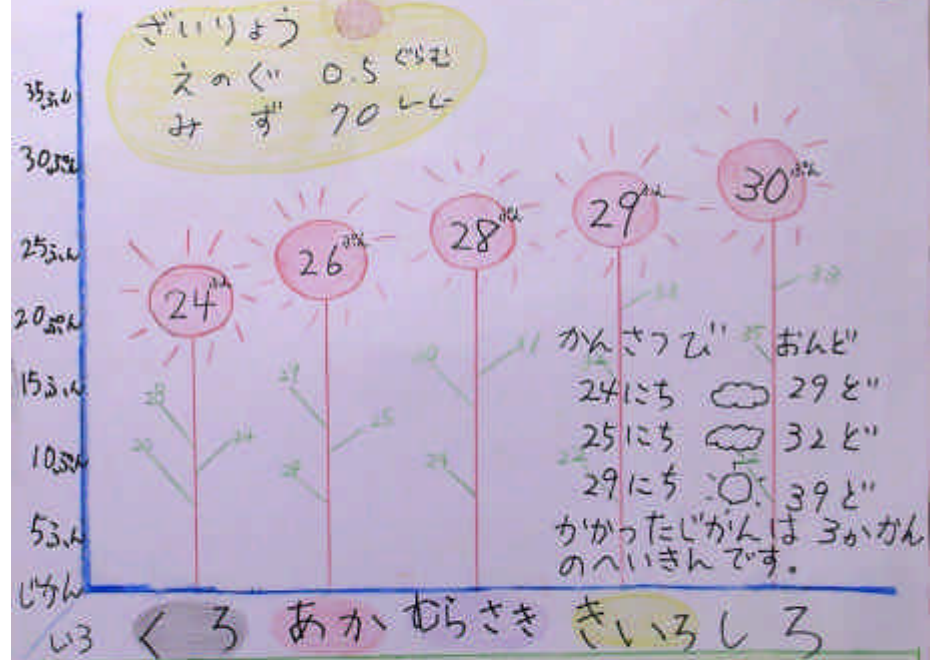 ざいりょう
えのぐ 0.5 ぐらむ
みず 70 しーしー
35ふん
30ぷん
25ふん
20ぷん
15ふん
10ぷん
5ふん
じかん
24 ぷん
26 ぷん
28 ぷん
29 ふん
30 ぷん
かんさつび おんど
24にち 29ど
25にち 32ど
29にち 39ど
かかったじかんは 3かかん
のへいきんです。
いろ くろ あか むらさき きいろ しろ